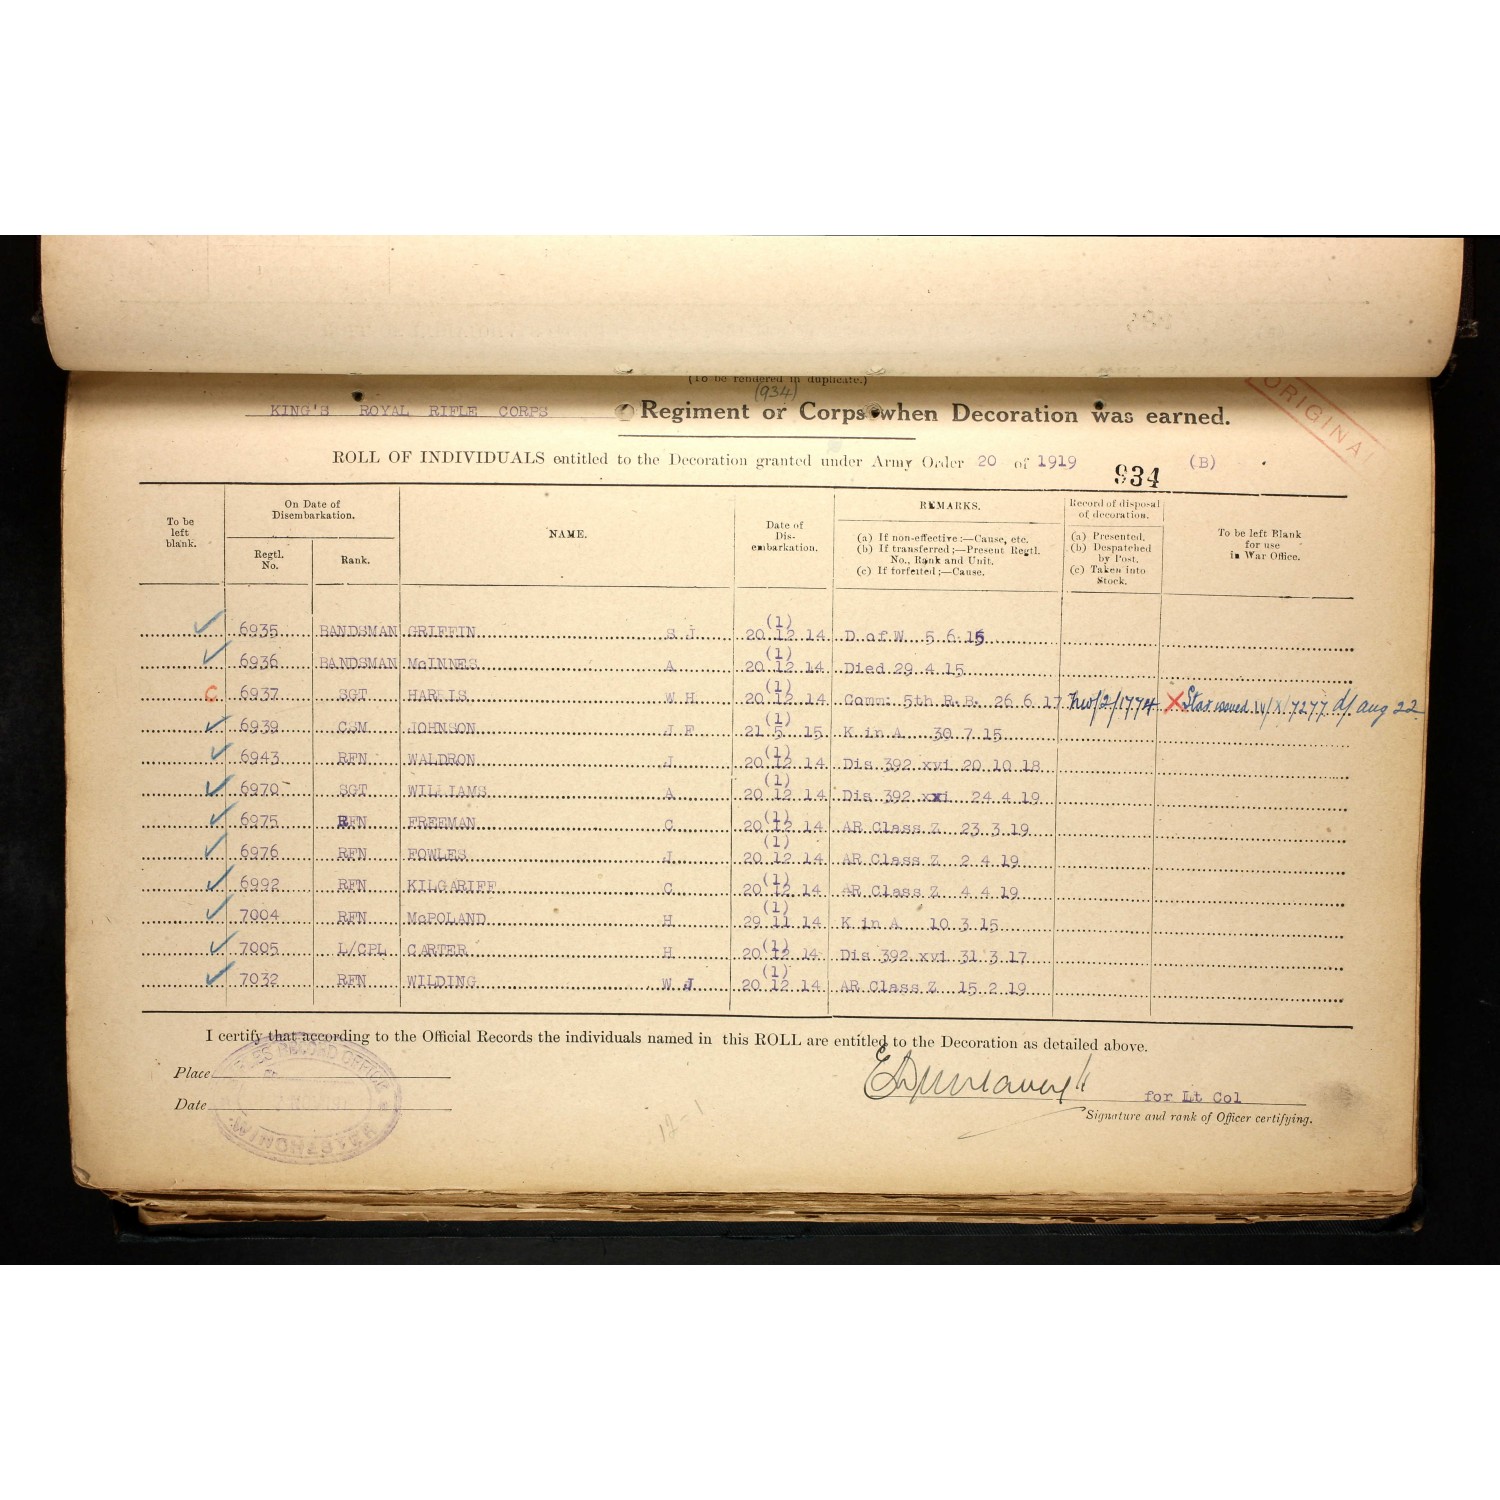 (To be rendered in duplicate.)
(934)
KING'S ROYAL RIFLE CORPS Regiment or Corps when Decoration was earned.
ORIGINAL
ROLL OF INDIVIDUALS entitled to the Decoration granted under Army Order 20 of 1919 (B)
934
To be left blank.
On Date of Disembarkation.
Regtl. No.
Rank.
NAME.
Date of Dis-embarkation.
REMARKS.
(a) If non-effective :—Cause, etc.
(b) If transferred ;—Present Regtl. No., Rank and Unit.
(c) If forfeited ;—Cause.
Record of disposal of decoration.
(a) Presented.
(b) Despatched by Post.
(c) Taken into Stock.
To be left Blank for use in War Office.
6935 BANDSMAN GRIFFIN S J (1) 20 12 14 D of W 5 6 15
6936 BANDSMAN McINNES A (1) 20 12 14 Died 29 4 15
C 6937 SGT HARRIS W H (1) 20 12 14 Comm: 5th R.B. 26 6 17 /2/1774 X Star issued IV/X/7277 d/ Aug 22
6939 CSM JOHNSON J F (1) 21 5 15 K in A 30 7 15
6943 RFN WALDRON J (1) 20 12 14 Dis 392 xvi 20 10 18
6970 SGT WILLIAMS A (1) 20 12 14 Dis 392 xxi 24 4 19
6975 RFN FREEMAN C (1) 20 12 14 AR Class Z 23 3 19
6976 RFN FOWLES J (1) 20 12 14 AR Class Z 2 4 19
6992 RFN KILGARIFF C (1) 20 12 14 AR Class Z 4 4 19
7004 RFN McPOLAND H (1) 29 11 14 K in A 10 3 15
7005 L/CPL CARTER H (1) 20 12 14 Dis 392 xvi 31 3 17
7032 RFN WILDING W J (1) 20 12 14 AR Class Z 15 2 19
I certify that according to the Official Records the individuals named in this ROLL are entitled to the Decoration as detailed above.
Place
Date
RECORD OFFICE
WINCHESTER
for Lt Col
Signature and rank of Officer certifying.
12-1